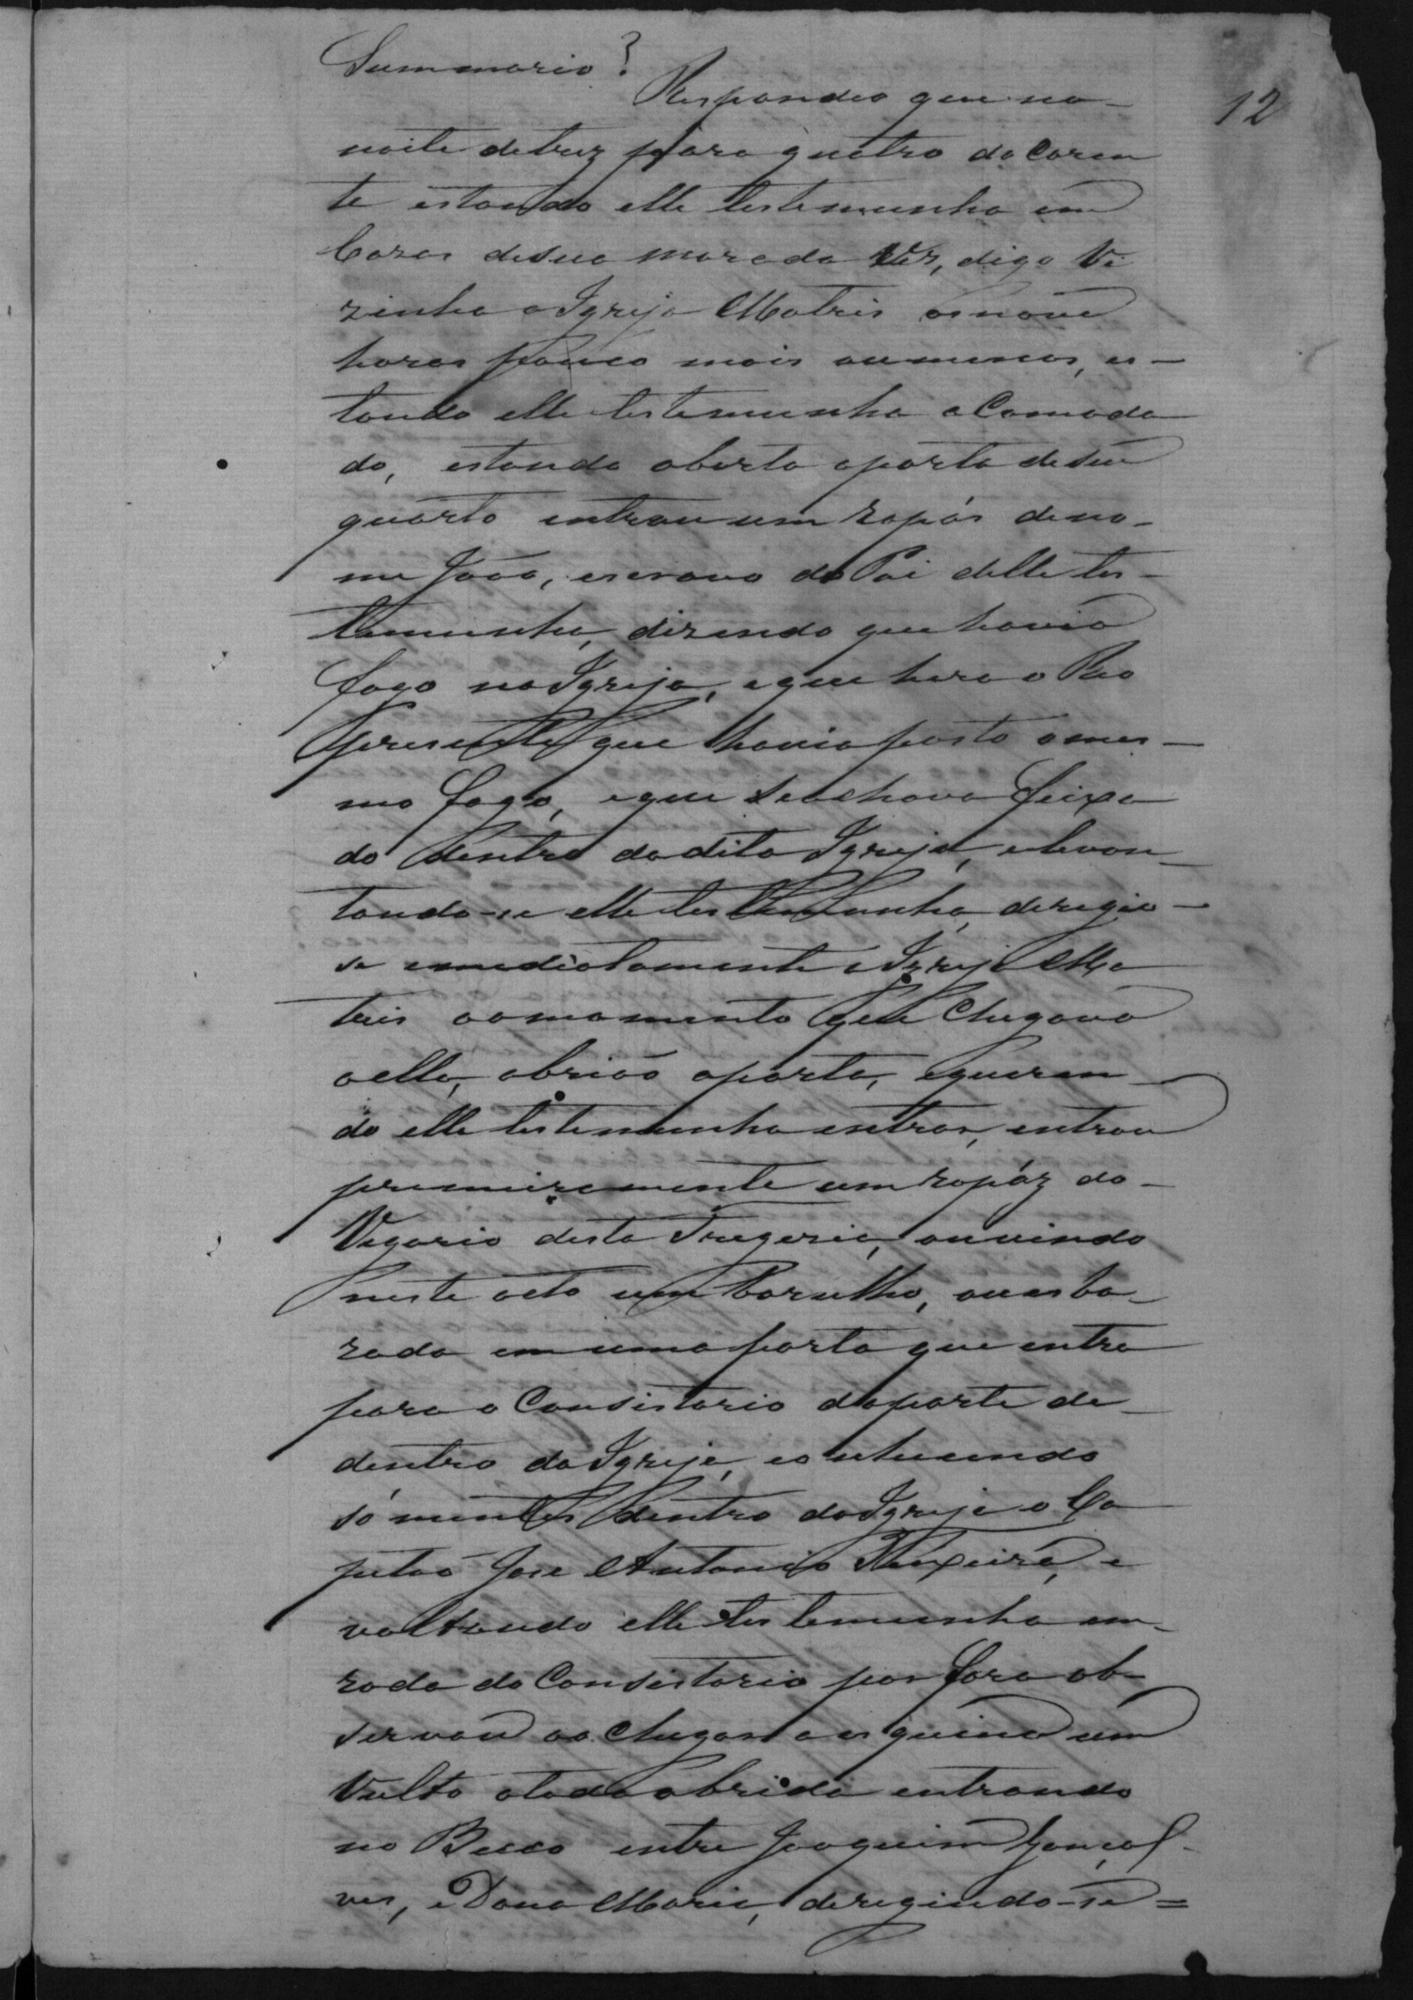 Summario?
12
Respondeo que na
noite de trez para quatro do Coren
te estando elle testemunha em
Caras de sua morada Ver, digo Ve
zinha a Igreja Matris as nove
horas pouco mais ou menos, es-
tando elle testemunha a Comoda
do, estando aberta aporta de seu
quarto entrou um rapás de no-
me João, escravo do Pai delle tes-
temunha, dizendo que havia
fogo na Igreja, e que hera o Reo
presente que havia posto o mes-
mo fogo, e que se achava feixa
do dentro da dita Igreja, e levan-
tando-se elle testemunha, deregio-
se emediatamente a Igreja Ma
tris ao momento que Chegava
a ella, abrião aporta, e queren-
do elle testemunha entrar, entrou
premeiramente um rapáz do-
Vegario desta Freguezia, ouvindo
neste acto um barulho, ou esba-
rada em uma porta que entra
para o Consistorio da parte de-
dentro da Igreja, conhecendo
só mentes dentro da Igreja o Ca
pitão Jose Antonio Teixeira, e
voltando elle testemunha em-
roda do Consistorio por fora ob-
servou ao chegar a esquina um
Vulto a toda abrida entrando
no Becco entre Joaquim Gonçal-
ves, e Dona Maria, deregindo-se =